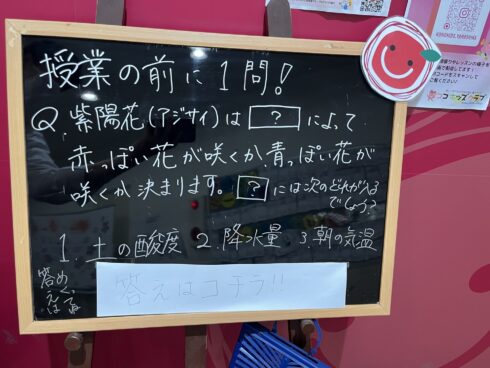 授業の前に1問!
Q. 紫陽花(アジサイ)は ? によって
赤っぽい花が咲くか、青っぽい花が
咲くか決まります。 ? には次のどれが入る
でしょう?
1. 土の酸度 2. 降水量 3. 朝の気温
答えは
めくってね
答えはコチラ!!